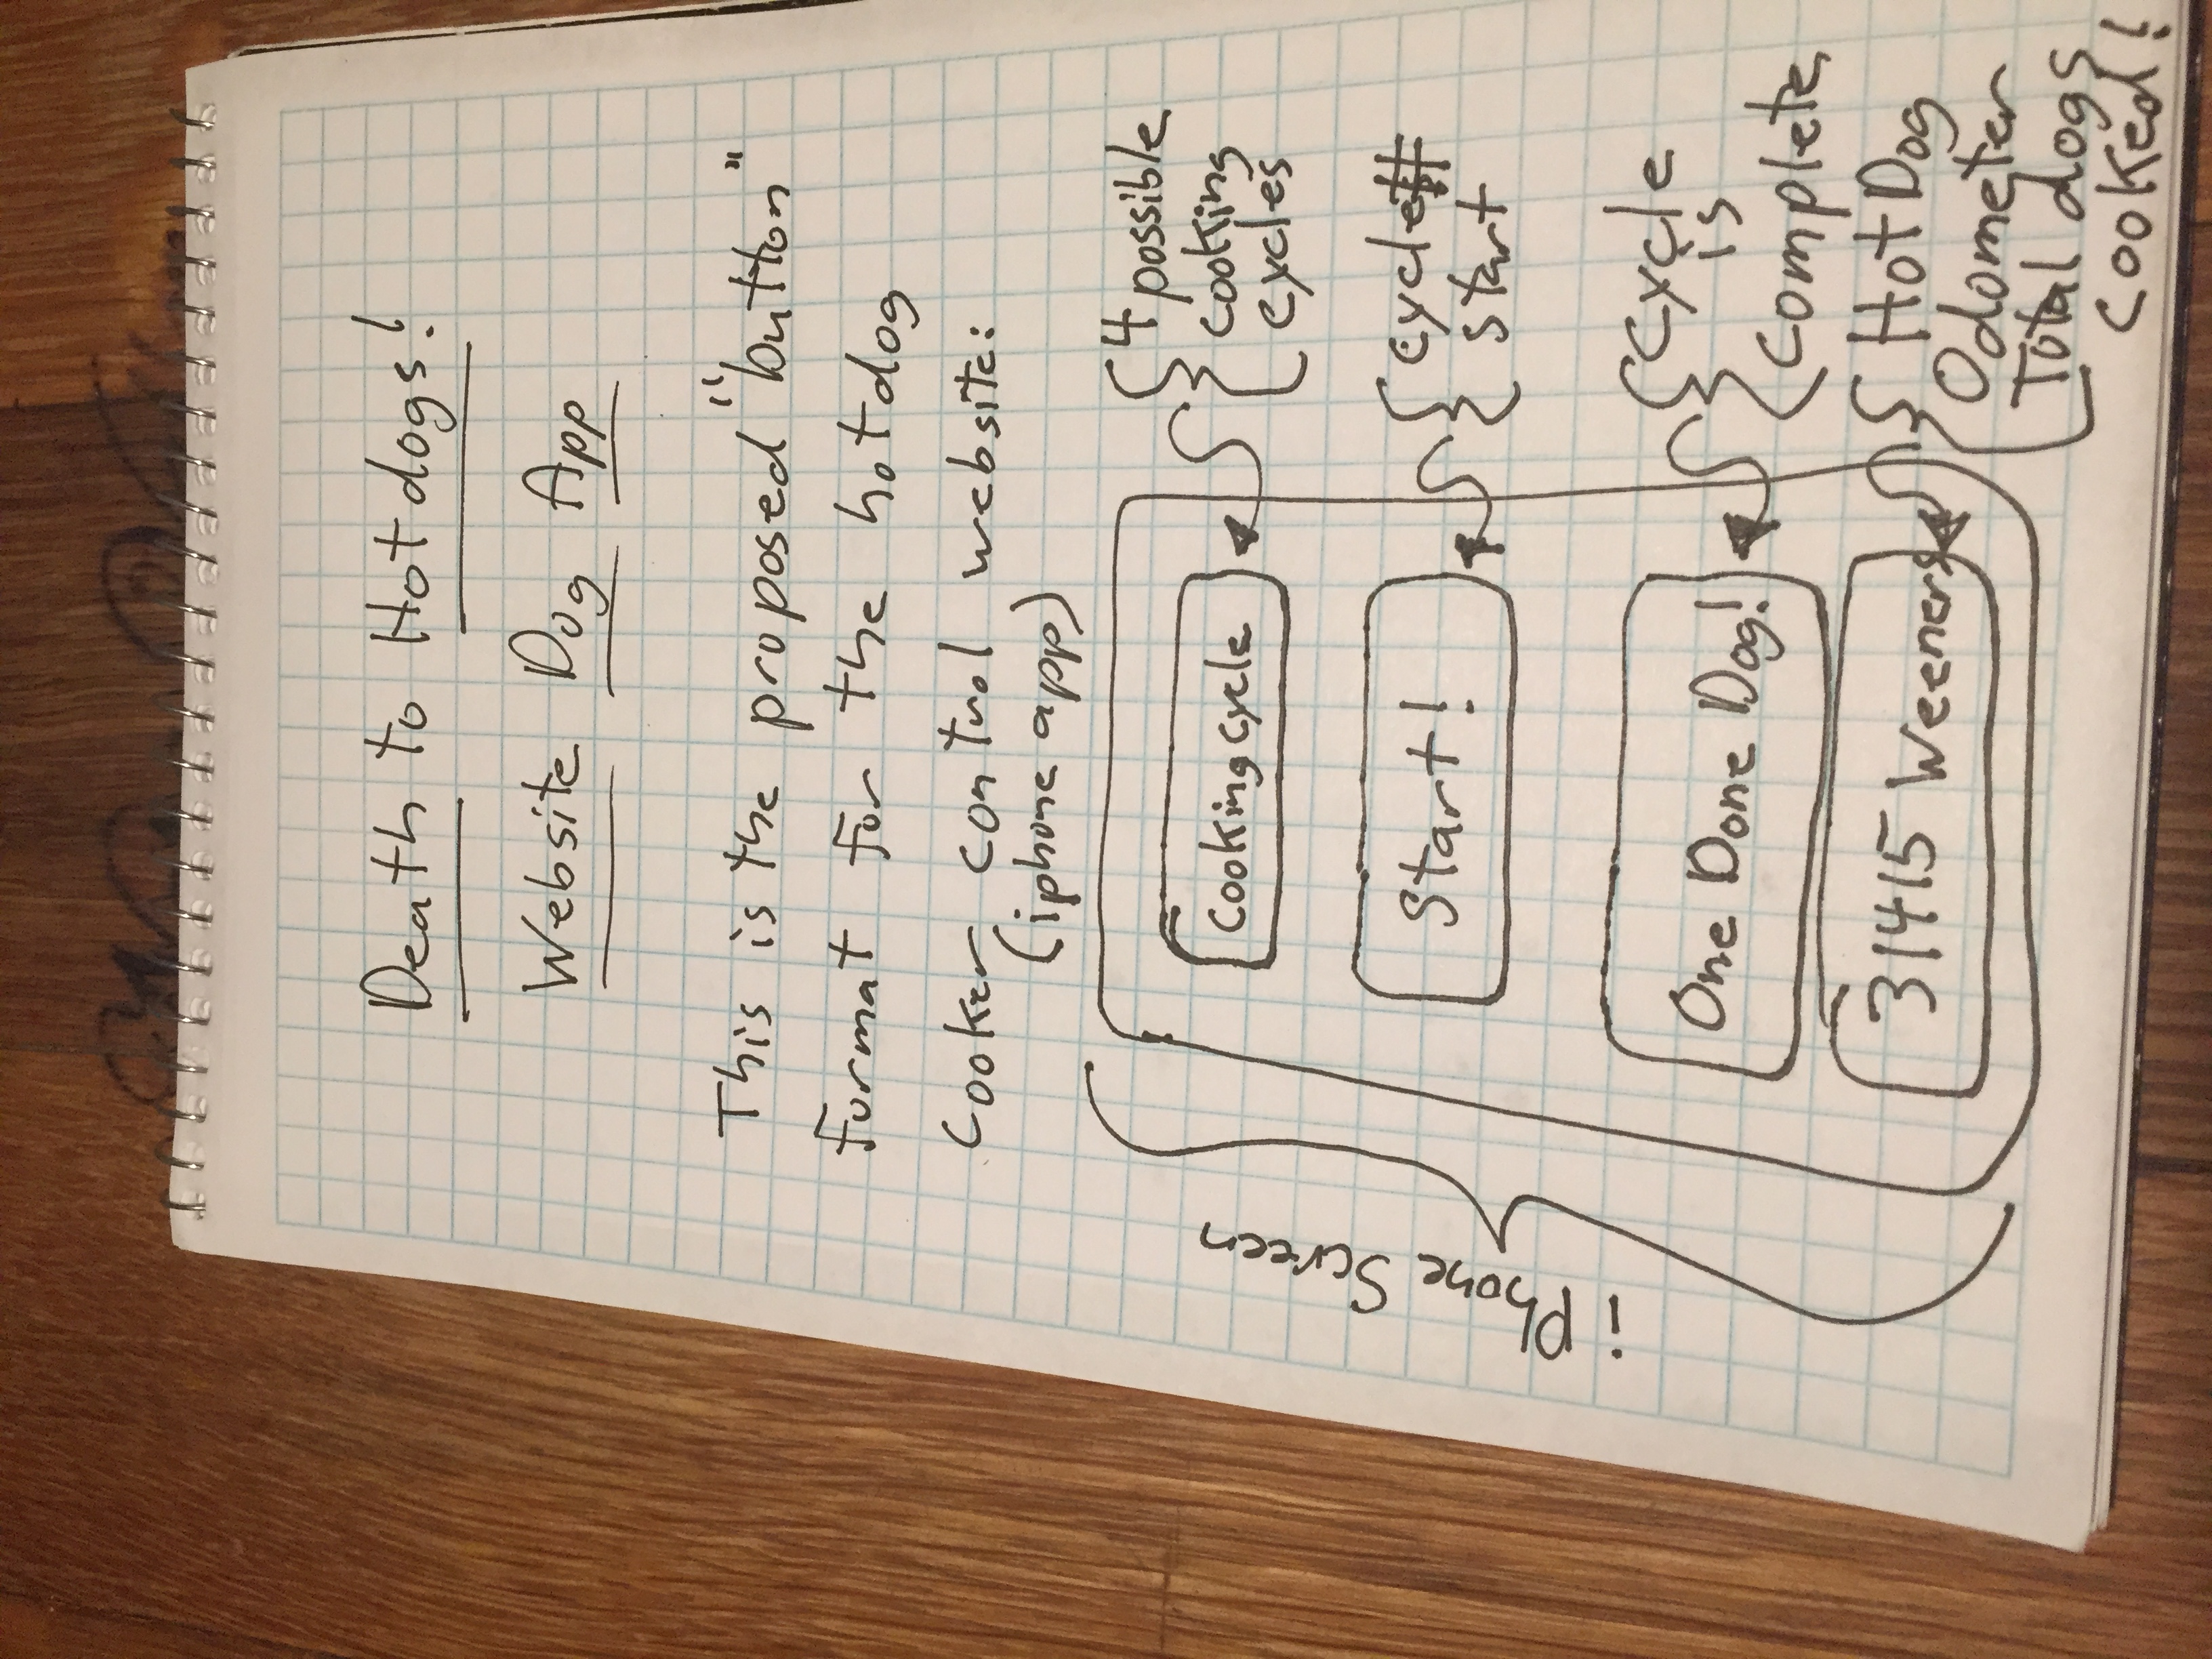 Death to Hotdogs!
Website Dog App
This is the proposed "button"
format for the hotdog
cooker control website:
(iphone app)
Cooking cycle
4 possible
cooking
cycles
Start!
cycle
start
One Done Dog!
cycle
is
complete
31415 Weeners
HotDog
Odometer
Total dogs
cooked!
iPhone Screen